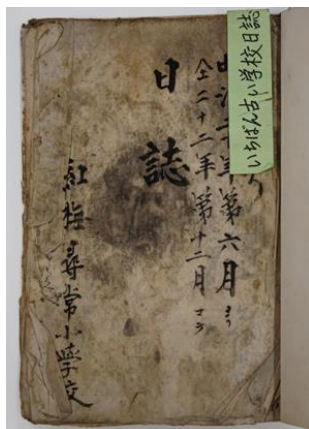 いちばん古い学校日誌
年第六月ヨリ
仝二十二年第十二月マテ
日誌
紅梅尋常小學校